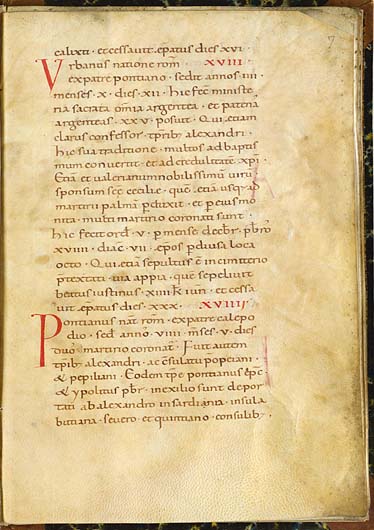 calixti · et cessavit epatus dies xvi ·
Urbanus natione rom̄ · XVIII ·
ex patre pontiano · sedit annos iiii ·
menses · x · dies · xii · hic fec̄ ministe
ria sacrata om̄ia argentea · et patena
argenteas · xx v · posuit · Qui etiam
clarus confessor · tp̄rib; alexandri ·
hic sua traditione · multos ad baptis
mum convertit · et ad credulitatē xp̄i ·
Etiā et valerianum nobilissimū virū
sponsum sc̄e cecilie · quē etiā usq; ad
martirii palmā pduxit · et p eius mo
nita · multi martirio coronati sunt ·
hic fecit ord̄ · v · p mense decēbr̄ · pb̄ro
xviiii · diac̄ · vii · ep̄os p diversa loca
octo · Qui etiā sepultus ē in cimiterio
p̄textati · via appia · quē sepelivit
beatus iustinus · xiiii kl̄ iun̄ · et cessa
vit epatus dies · xxx · XVIIII ·
Pontianus nat̄ rom̄ · ex patre calepo
dio · sed̄ anno · viiii · m̄ses · v · dies
duo · martirio coronat̄ · Fuit autem
tp̄rib; alexandri · a c̄sulatu popeiani ·
& pepiliani · Eodem tp̄e pontianus ep̄c
& ypolitus pb̄r · in exilio sunt depor
tati ab alexandro in sardania · insula
buttiana · severo · et quintiano · consulib;